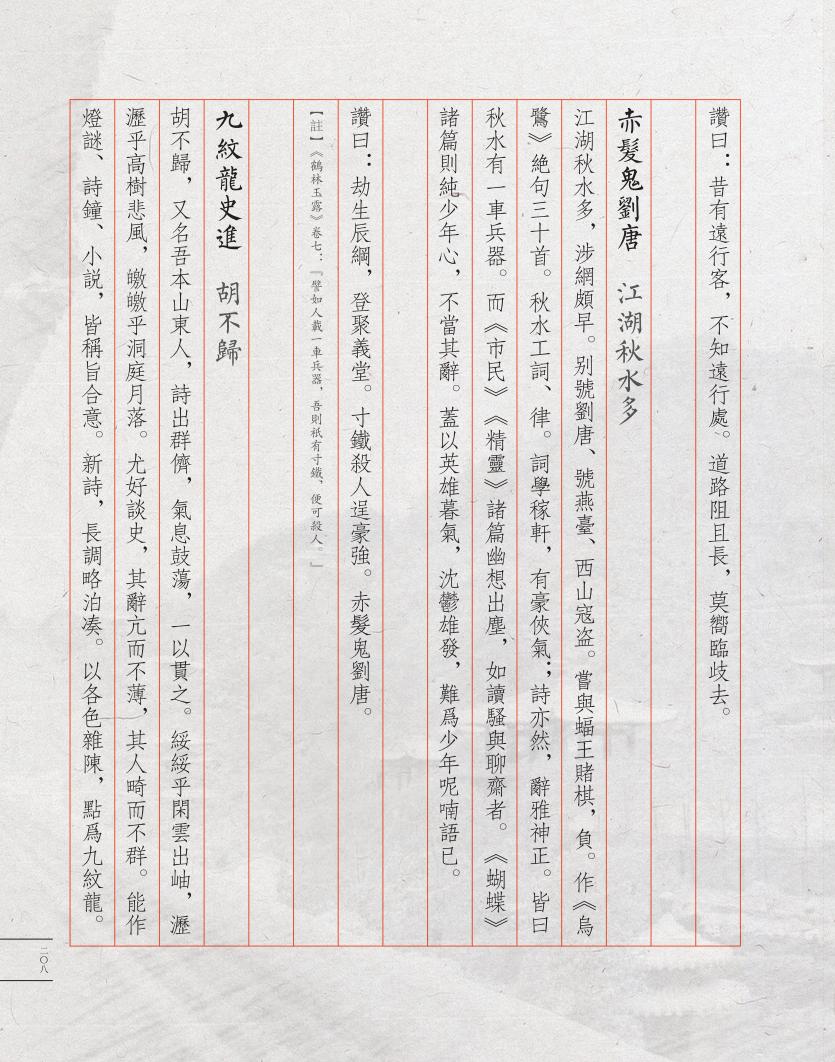 讚曰：昔有遠行客，不知遠行處。道路阻且長，莫嚮臨歧去。
赤髮鬼劉唐　江湖秋水多
江湖秋水多，涉網頗早。别號劉唐、號燕臺、西山寇盗。嘗與蝠王賭棋，負。作《烏
鷺》絶句三十首。秋水工詞、律。詞學稼軒，有豪俠氣；詩亦然，辭雅神正。皆曰
秋水有一車兵器。而《市民》《精靈》諸篇幽想出塵，如讀騷與聊齋者。《蝴蝶》
諸篇則純少年心，不當其辭。蓋以英雄暮氣，沈鬱雄發，難爲少年呢喃語已。
讚曰：劫生辰綱，登聚義堂。寸鐵殺人逞豪強。赤髮鬼劉唐。
【註】《鶴林玉露》卷七：『譬如人載一車兵器，吾則祇有寸鐵，便可殺人。』
九紋龍史進　胡不歸
胡不歸，又名吾本山東人，詩出群儕，氣息鼓蕩，一以貫之。綏綏乎閑雲出岫，瀝
瀝乎高樹悲風，皦皦乎洞庭月落。尤好談史，其辭亢而不薄，其人畸而不群。能作
燈謎、詩鐘、小説，皆稱旨合意。新詩，長調略泊凑。以各色雜陳，點爲九紋龍。
二〇八